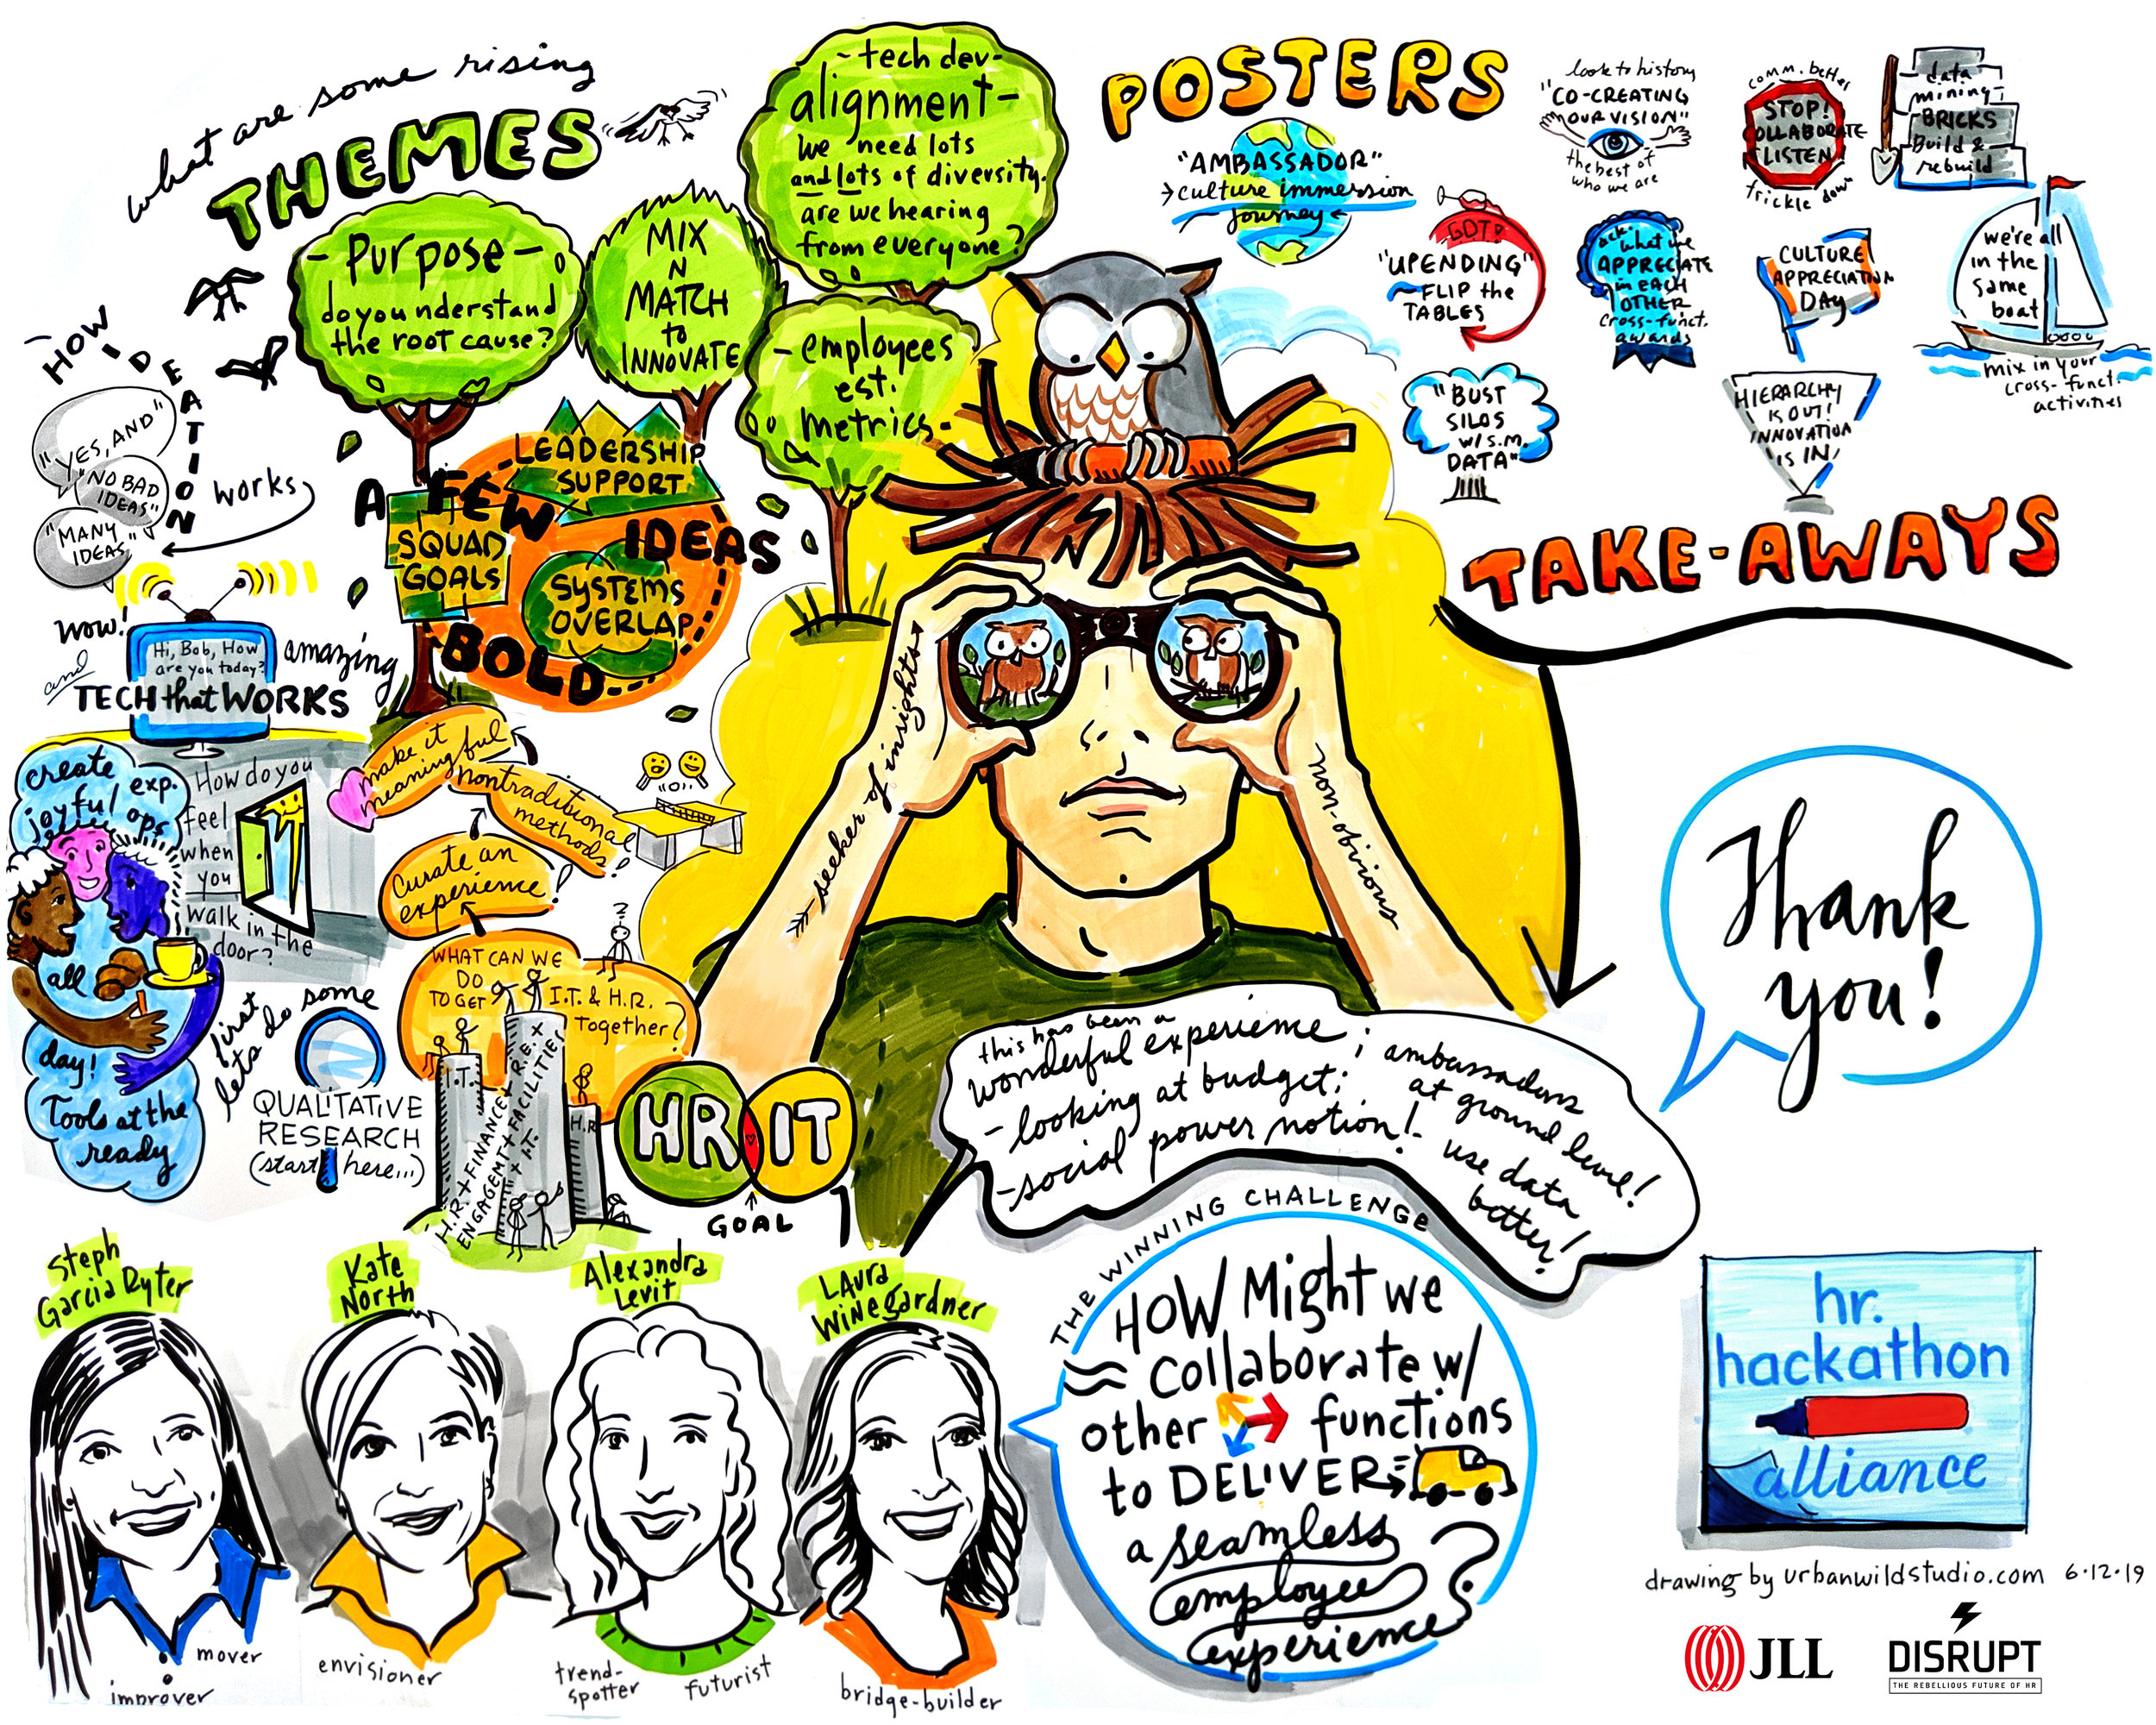 what are some rising
THEMES
- Purpose -
do you understand
the root cause?
MIX
N
MATCH
to
INNOVATE
- tech dev-
alignment-
We need lots
and lots of diversity.
are we hearing
from everyone?
- employees
est.
metrics-
HOW
IDEATION
works
"YES, AND"
"NO BAD
IDEAS"
"MANY
IDEAS"
A FEW
BOLD
IDEAS
LEADERSHIP
SUPPORT
SQUAD
GOALS
SYSTEMS
OVERLAP
wow!
and
amazing
Hi, Bob, How
are you today?
TECH that WORKS
create
joyful exp.
ops
all
day!
Tools at the
ready
How do you
feel
when
you
walk in the
door?
make it
meaningful
nontraditional
methods!
Curate an
experience!
WHAT CAN WE
DO
TO GET
I.T. & H.R.
Together?
first
lets do some
QUALITATIVE
RESEARCH
(start here...)
I.T.
H.R. + FINANCE + R.E. x
ENGAGEMT + FACILITIES
+ I.T.
H.R
HR IT
GOAL
seeker of insights
non-obvious
POSTERS
"AMBASSADOR"
culture immersion
journey
look to history
"CO-CREATING
OUR VISION"
the best of
who we are
comm. better
STOP!
COLLABORATE
LISTEN
trickle down
data
mining-
BRICKS
Build &
rebuild
GDT!
"UPENDING"
FLIP the
TABLES
ack. what we
APPRECIATE
in EACH
OTHER
cross-funct.
awards
CULTURE
APPRECIATION
DAY
we're all
in the
same
boat
mix in your
cross-funct.
activities
"BUST
SILOS
w/ S.M.
DATA"
HIERARCHY
IS OUT!
INNOVATION
IS IN!
TAKE-AWAYS
Thank
you!
this has been a
wonderful experience;
- looking at budget;
- social power notion!
ambassadors
at ground level!
- use data
better!
Steph
Garcia Ryter
improver
mover
Kate
North
envisioner
Alexandra
Levit
trend-
spotter
futurist
LAura
Winegardner
bridge-builder
THE WINNING CHALLENGE
HOW Might we
Collaborate w/
other functions
to DELIVER
a seamless
employee
experience?
hr.
hackathon
alliance
drawing by urbanwildstudio.com 6·12·19
JLL
DISRUPT
THE REBELLIOUS FUTURE OF HR